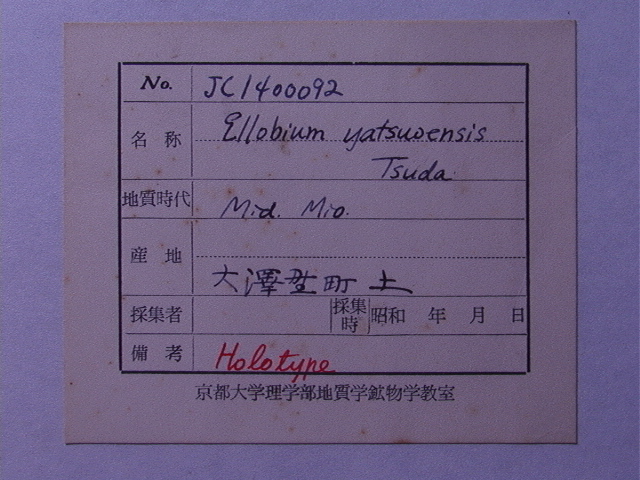 No. JC1400092
名称 Ellobium yatsuoensis
Tsuda
地質時代 Mid. Mio.
産地
大澤野町 土
採集者 採集時 昭和 年 月 日
備考 Holotype
京都大学理学部地質学鉱物学教室